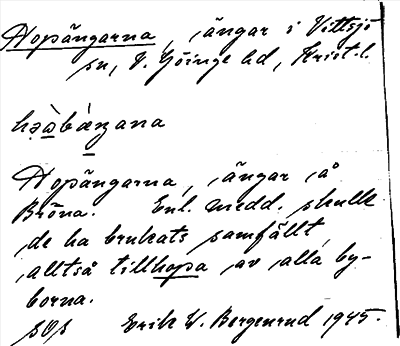 Hopängarna, ängar i Vittsjö
sn, V. Göinge hd, Krist. l.
Hopängarna, ängar å
Bröna. Enl. medd. skulle
de ha brukats samfällt,
alltså tillhopa av alla by-
borna.
Erik W. Bergenrud 1945.